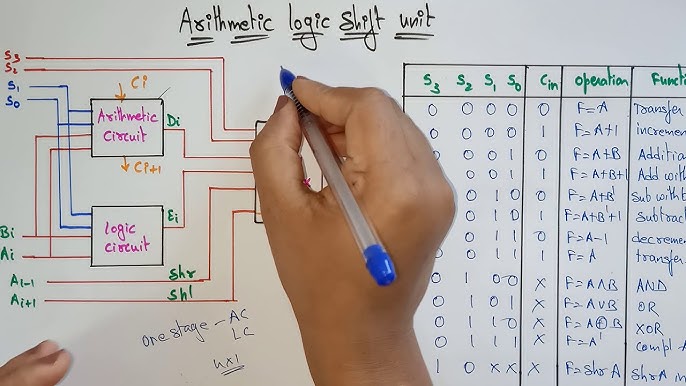 Arithmetic logic shift unit
S3
S2
S1
S0
Ci
Arithmetic
Circuit
Di
Ci+1
logic
circuit
Ei
Bi
Ai
Ai-1
shr
Ai+1
shl
one stage - AC
LC
4x1
S3 S2 S1 S0 Cin operation
0 0 0 0 0 F=A Transfer
0 0 0 0 1 F=A+1 increme
0 0 0 1 0 F=A+B Additio
0 0 0 1 1 F=A+B+1 Add wit
0 0 1 0 0 F=A+B' sub with
0 0 1 0 1 F=A+B'+1 subtrac
0 0 1 1 0 F=A-1 decreme
0 0 1 1 1 F=A transfer
0 1 0 0 X F=A∧B AND
0 1 0 1 X F=A∨B OR
0 1 1 0 X F=A⊕B XOR
0 1 1 1 X F=A' compl
1 0 X X X F=shr A shr A in